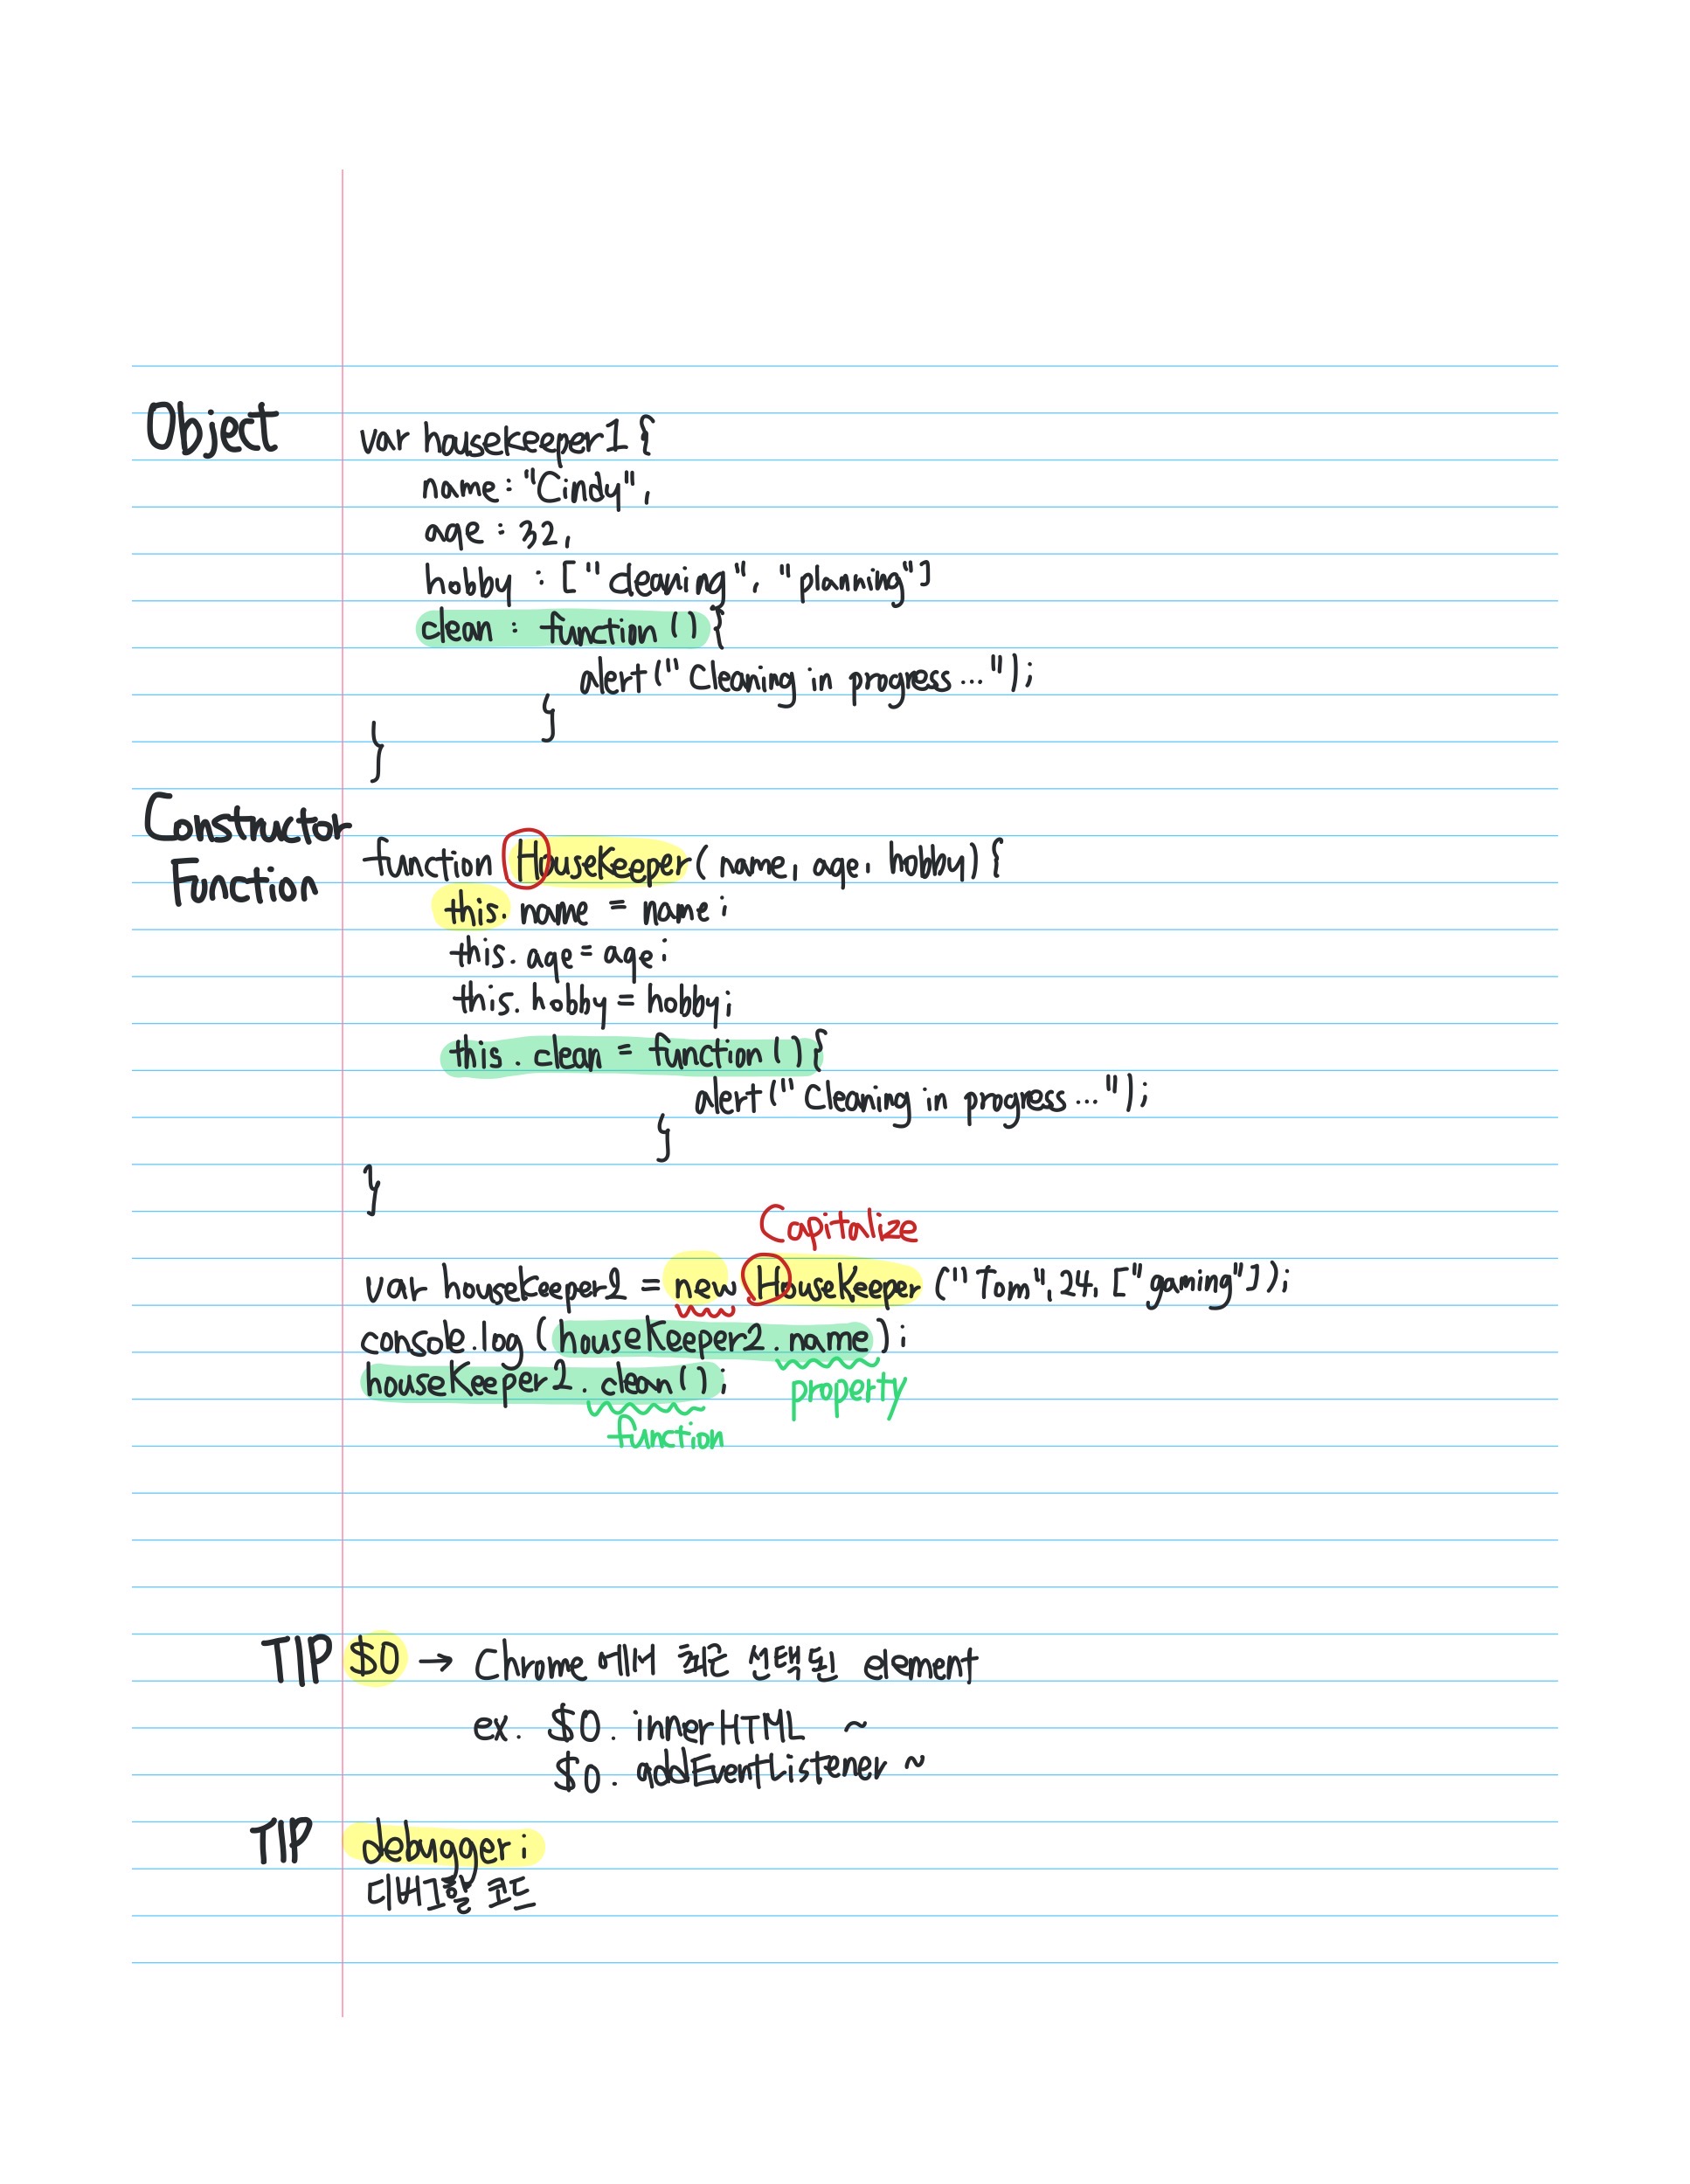 Object
var housekeeper1 {
name : "Cindy",
age : 32,
hobby : ["cleaning", "planning"]
clean : function () {
alert("Cleaning in progress ...");
}
}
Constructor
Function
function HouseKeeper ( name, age, hobby) {
this. name = name ;
this. age = age ;
this. hobby = hobby;
this . clean = function () {
alert (" Cleaning in progress ...");
}
}
Capitalize
var houseKeeper2 = new HouseKeeper ("Tom", 24, ["gaming"]);
console.log (houseKeeper2.name);
houseKeeper2.clean();
property
function
TIP $0 → Chrome 에서 최근 선택된 element
ex. $0. innerHTML ~
$0. addEventListener ~
TIP debugger;
디버그할 코드